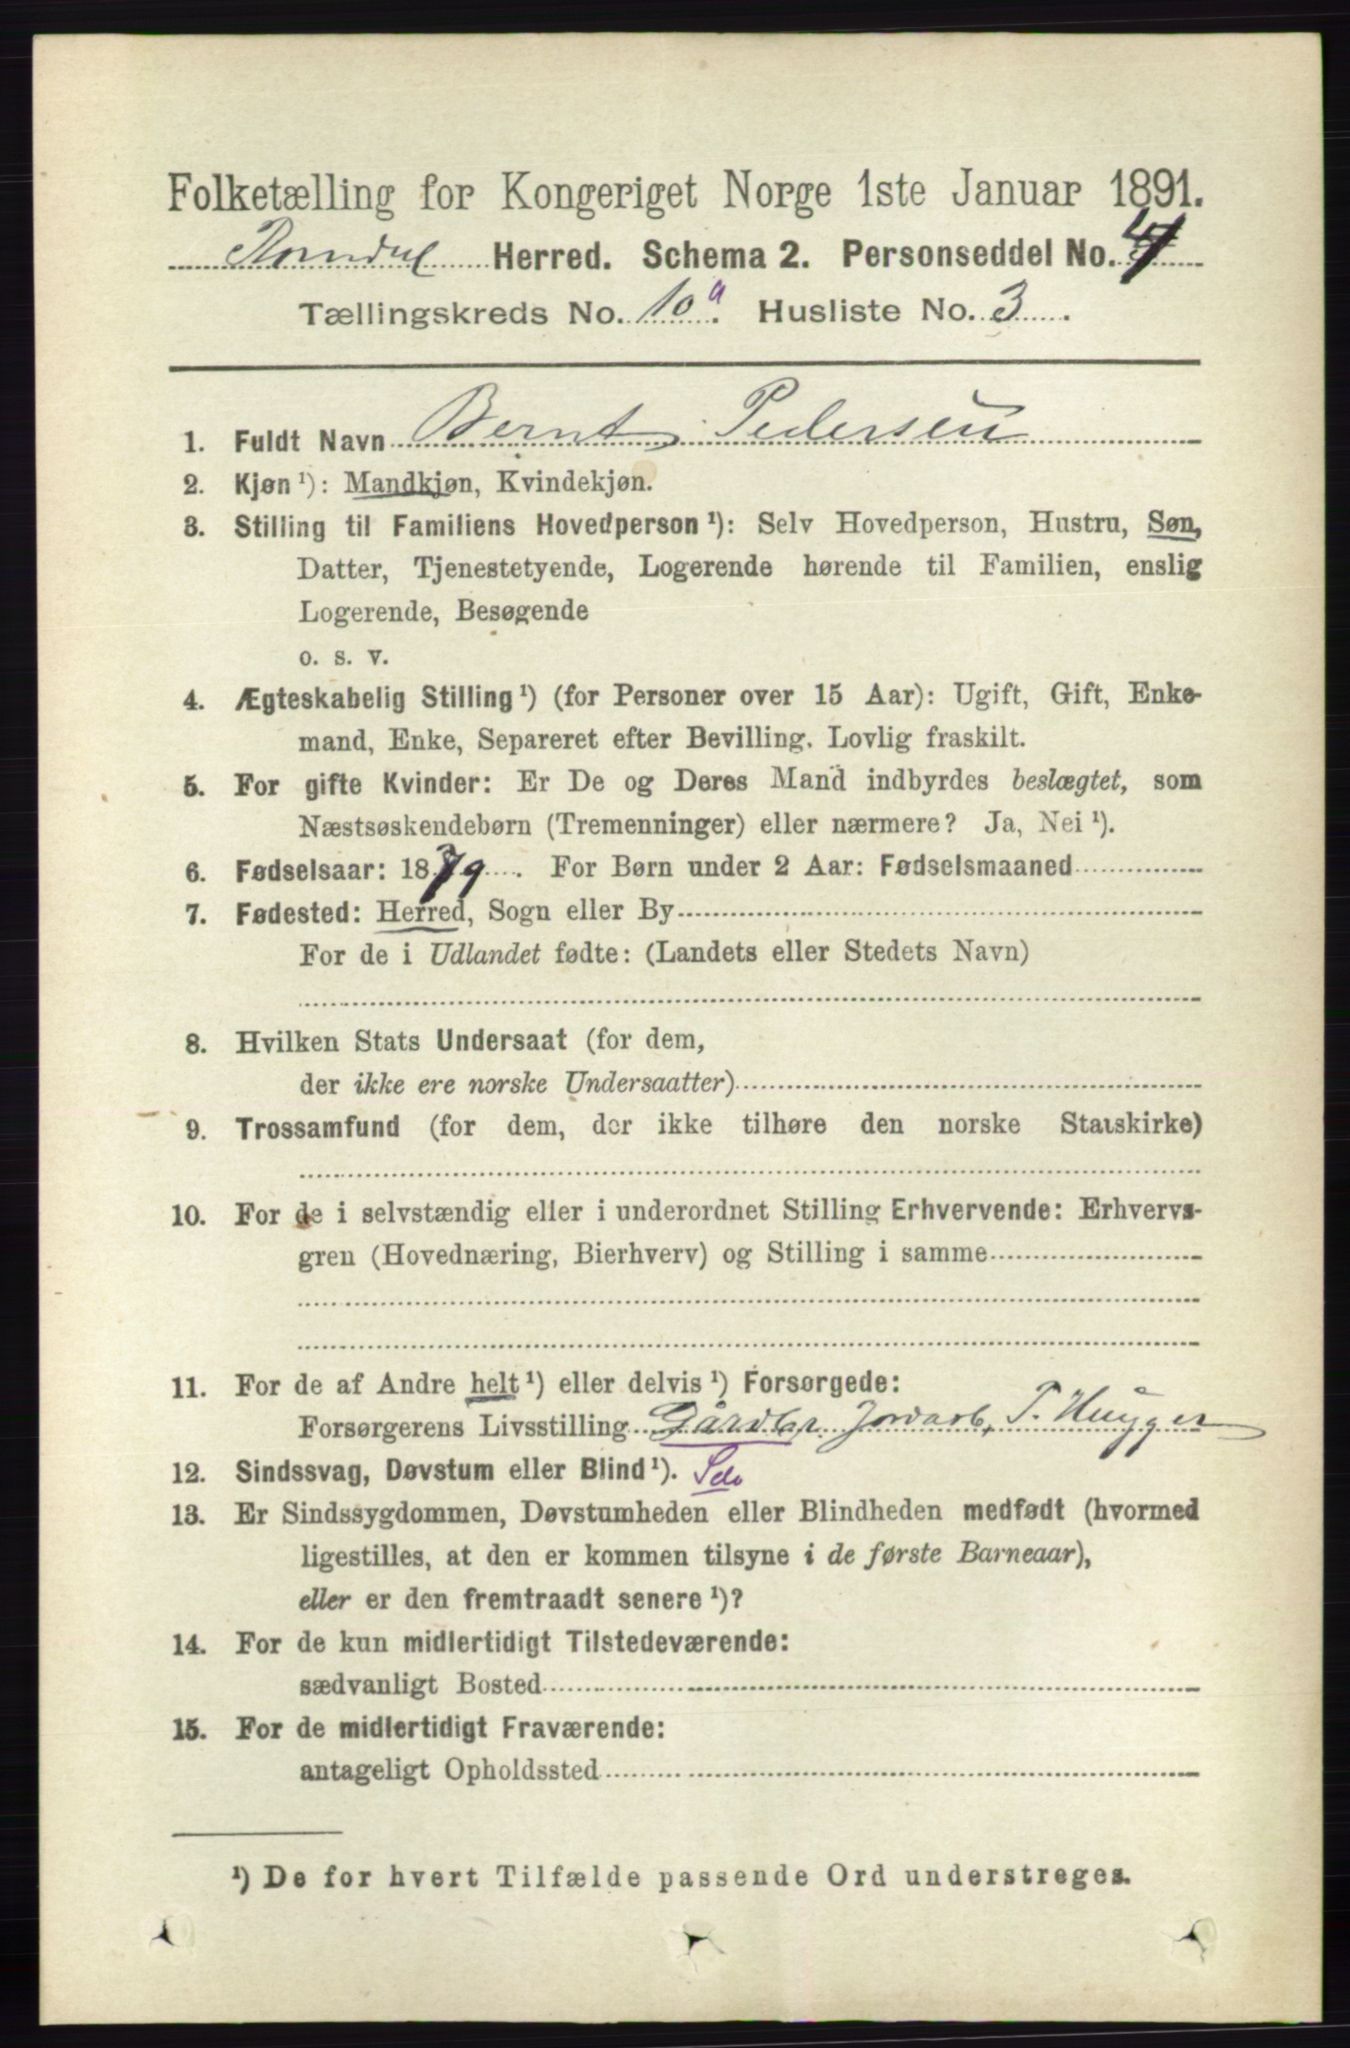 Folketælling for Kongeriget Norge 1ste Januar 1891.
Romdal Herred. Schema 2. Personseddel No. 4
Tællingskreds No. 10a. Husliste No. 3.
1. Fuldt Navn Bernt Pedersen
2. Kjøn ¹): Mandkjøn, Kvindekjøn.
3. Stilling til Familiens Hovedperson ¹): Selv Hovedperson, Hustru, Søn,
Datter, Tjenestetyende, Logerende hørende til Familien, enslig
Logerende, Besøgende
o. s. v.
4. Ægteskabelig Stilling ¹) (for Personer over 15 Aar): Ugift, Gift, Enke-
mand, Enke, Separeret efter Bevilling. Lovlig fraskilt.
5. For gifte Kvinder: Er De og Deres Mand indbyrdes beslægtet, som
Næstsøskendebørn (Tremenninger) eller nærmere? Ja, Nei ¹).
6. Fødselsaar: 1879. For Børn under 2 Aar: Fødselsmaaned
7. Fødested: Herred, Sogn eller By
For de i Udlandet fødte: (Landets eller Stedets Navn)
8. Hvilken Stats Undersaat (for dem,
der ikke ere norske Undersaatter)
9. Trossamfund (for dem, der ikke tilhøre den norske Statskirke)
10. For de i selvstændig eller i underordnet Stilling Erhvervende: Erhvervs-
gren (Hovednæring, Bierhverv) og Stilling i samme
11. For de af Andre helt ¹) eller delvis ¹) Forsørgede:
Forsørgerens Livsstilling Gårdbr. Jordarb,
12. Sindssvag, Døvstum eller Blind ¹).
13. Er Sindssygdommen, Døvstumheden eller Blindheden medfødt (hvormed
ligestilles, at den er kommen tilsyne i de første Barneaar),
eller er den fremtraadt senere ¹)?
14. For de kun midlertidigt Tilstedeværende:
sædvanligt Bosted
15. For de midlertidigt Fraværende:
antageligt Opholdssted
¹) De for hvert Tilfælde passende Ord understreges.